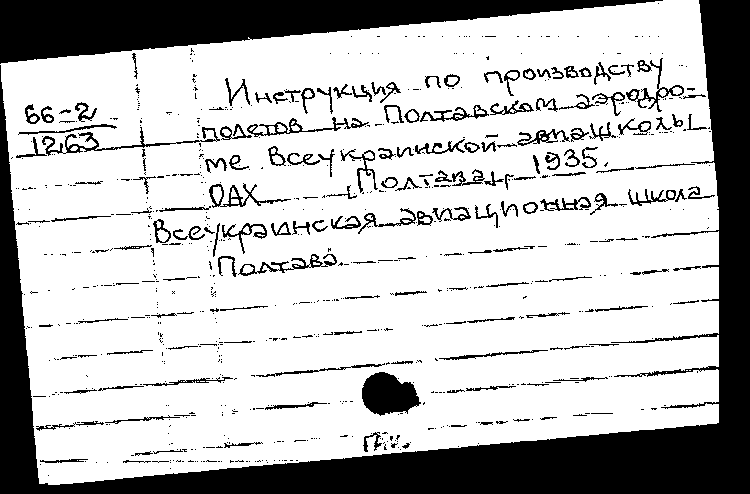 66-2
1263
Инструкция по производству
полетов на Полтавском аэродро-
ме Всеукраинской авиашколы
ОАХ [Полтава], 1935.
Всеукраинская авиационная школа
Полтава.